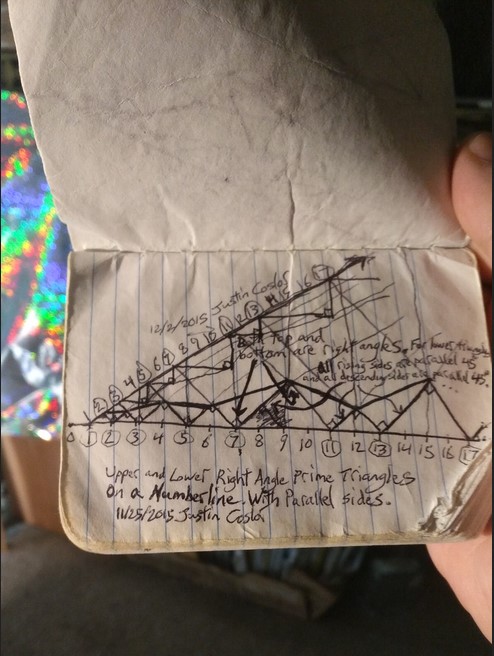 12/2/2015 Justin Coslor
1 2 3 4 5 6 7 8 9 10 11 12 13 14 15 16 17
top and
bottom are right angles. For lower triangles
all rising sides are parallel 45°
and all descending sides are parallel 45°.
...
0 1 2 3 4 5 6 7 8 9 10 11 12 13 14 15 16 17
Upper and Lower Right Angle Prime Triangles
On a Numberline. With Parallel sides.
11/25/2015 Justin Coslor